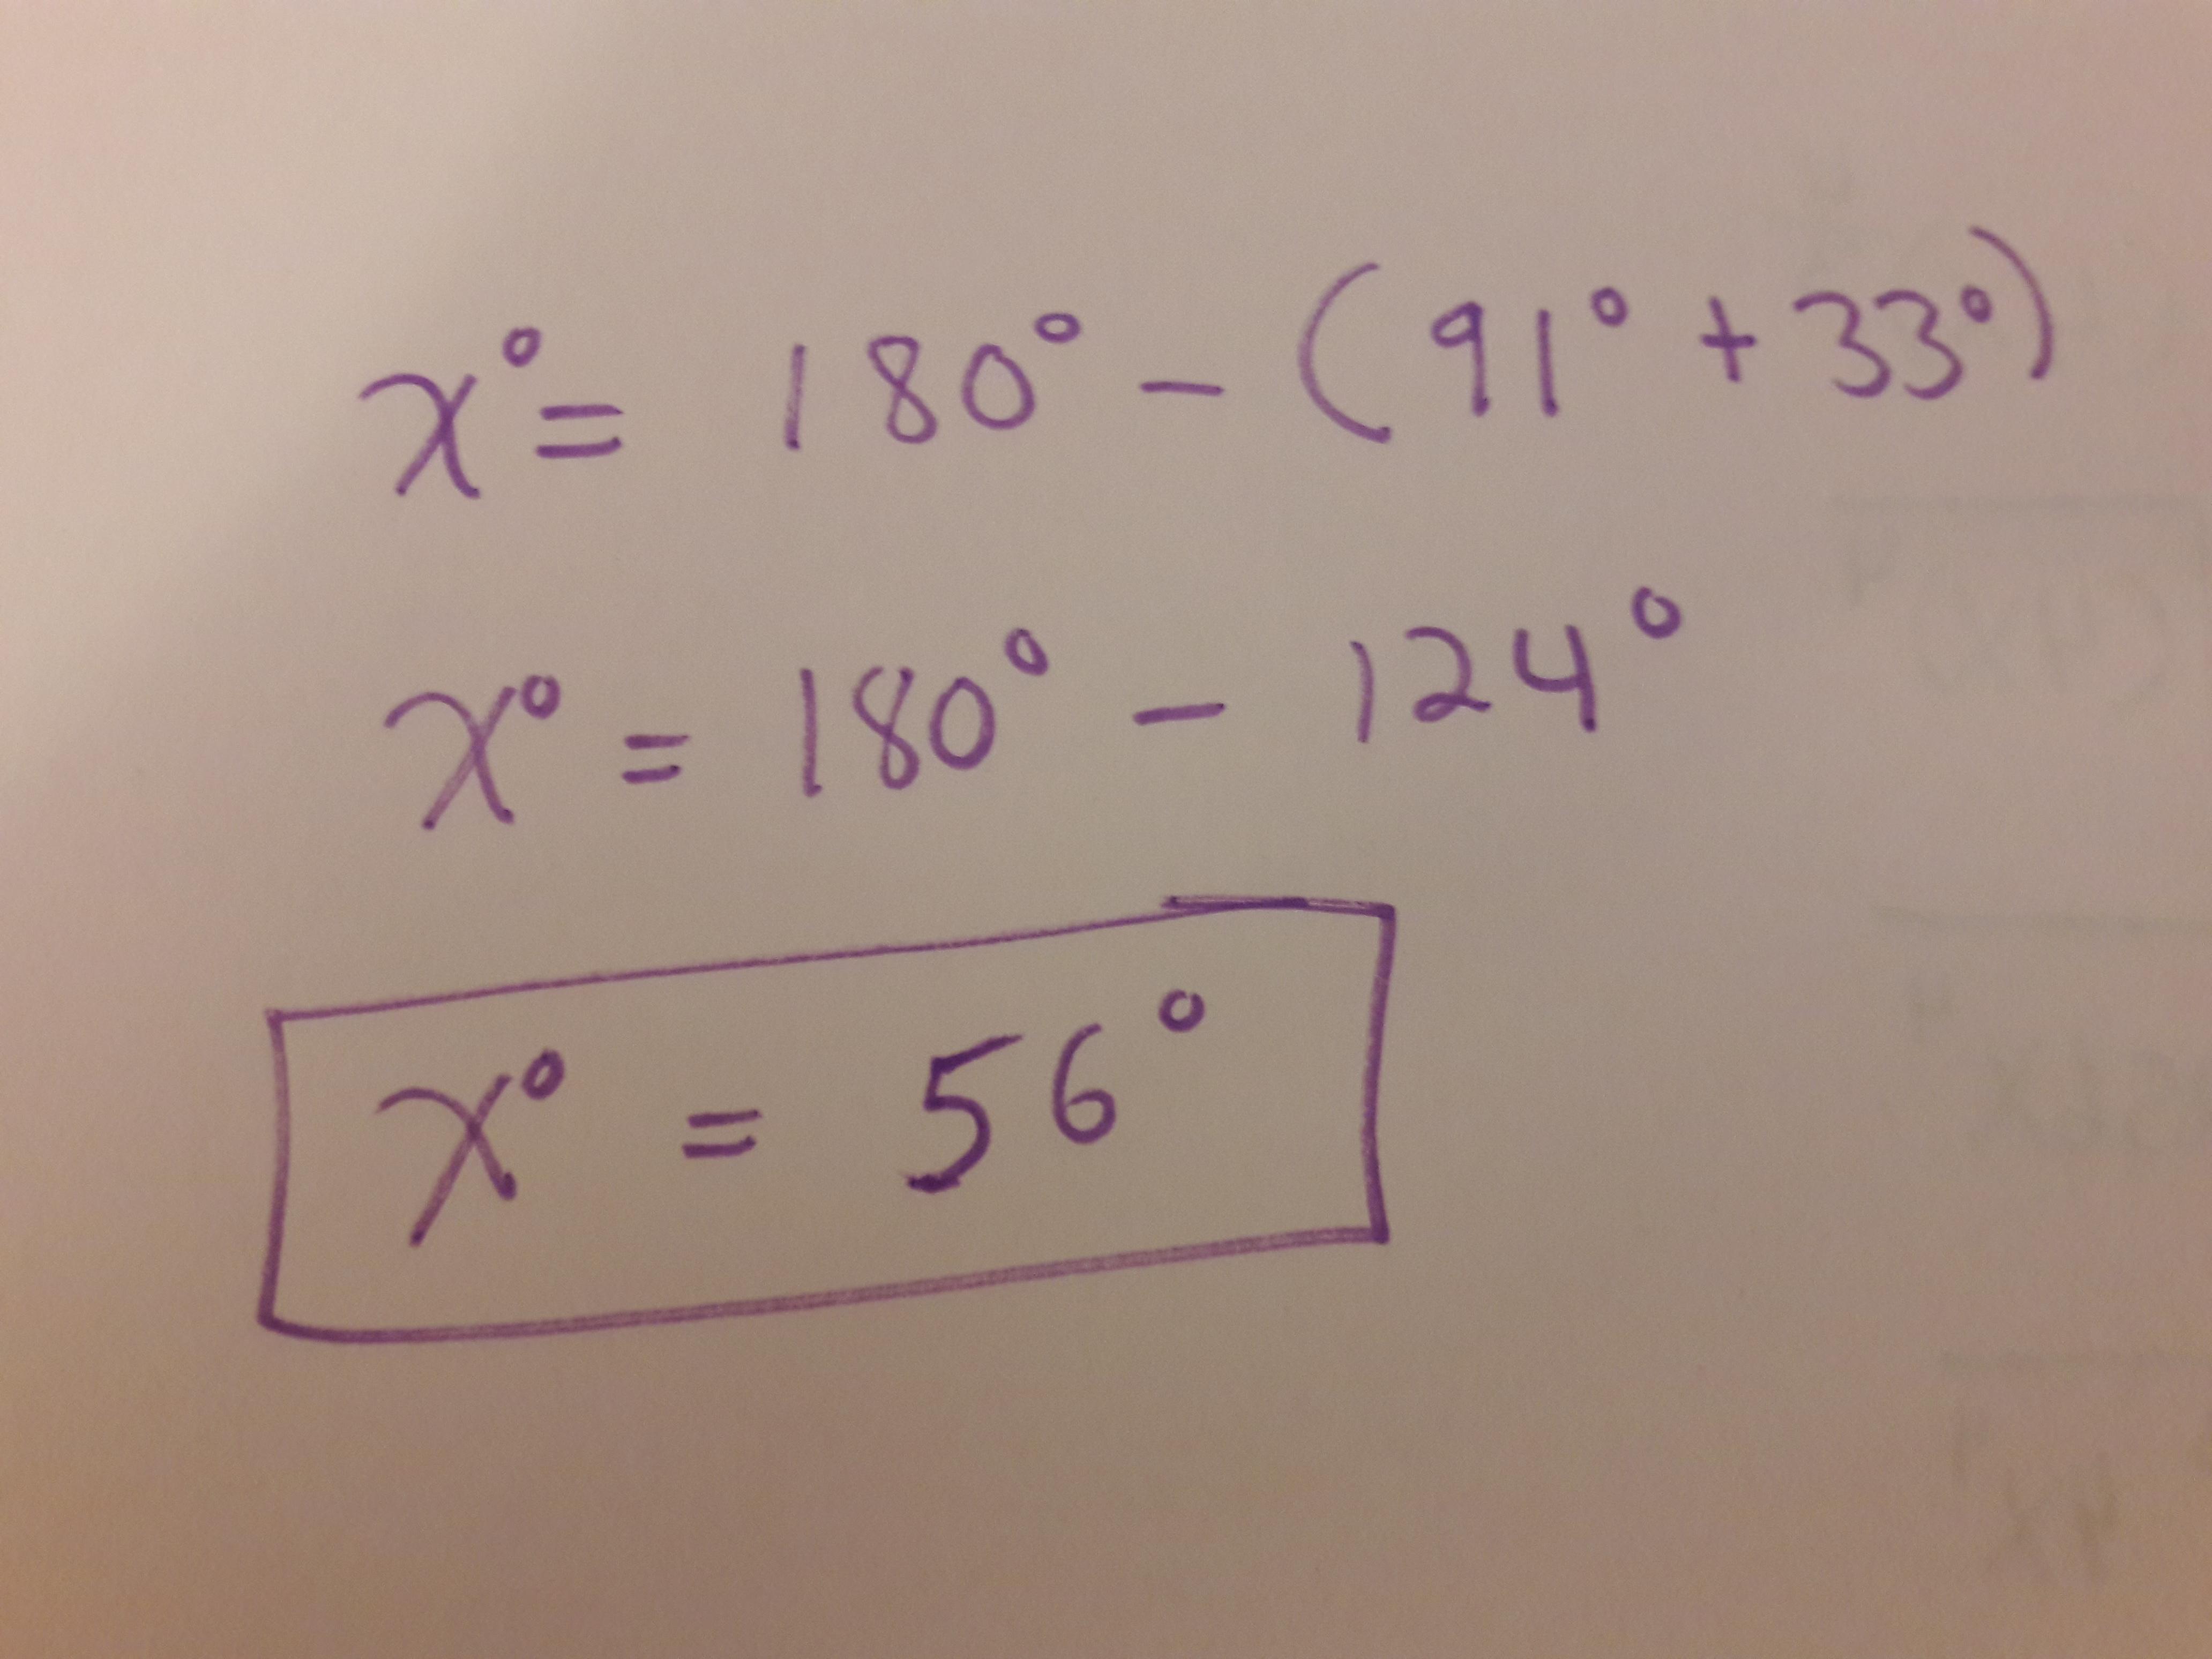 x° = 180° − (91° + 33°)
x° = 180° − 124°
x° = 56°